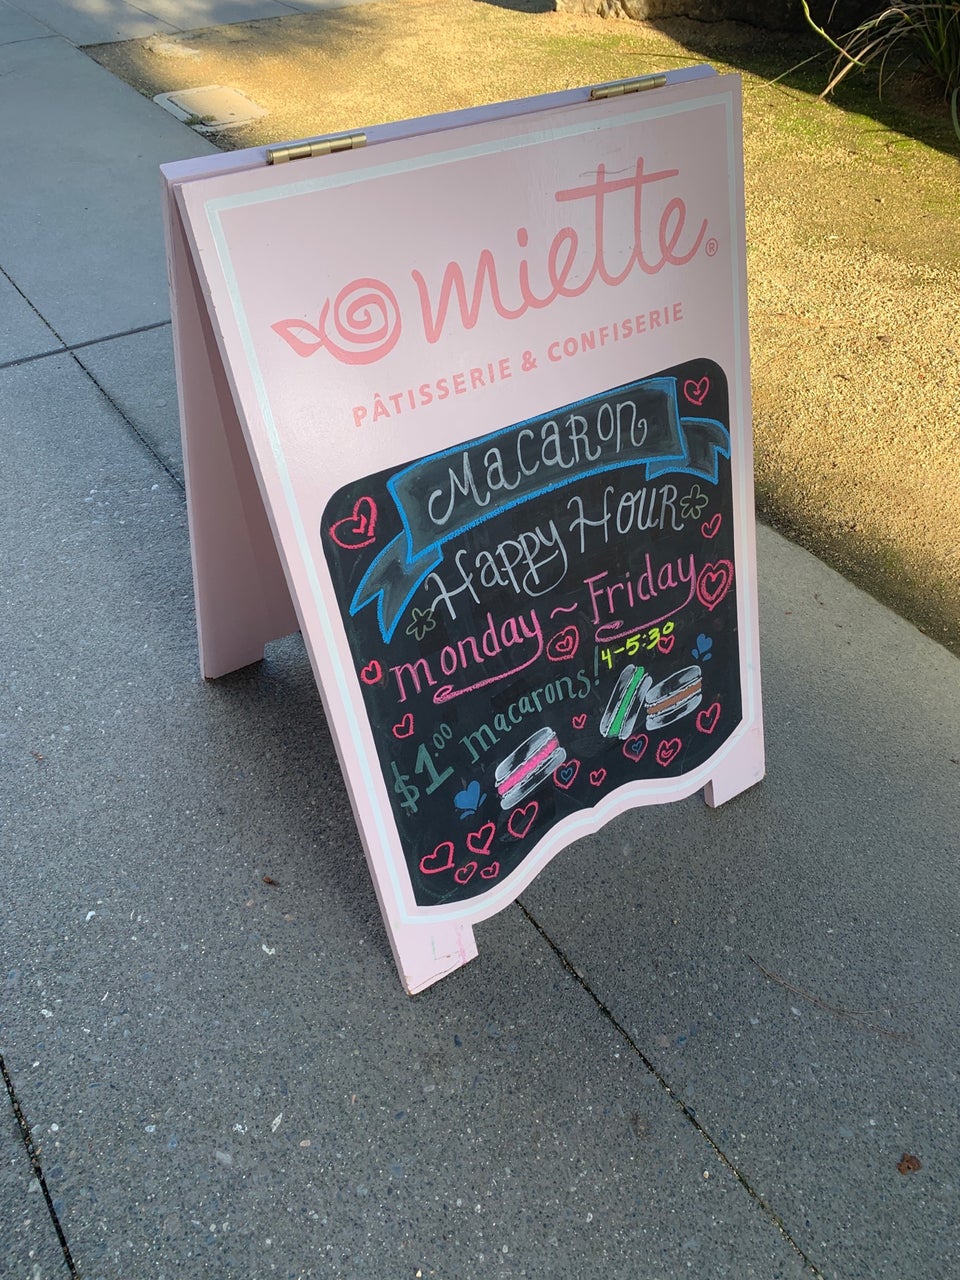 miette®
PÂTISSERIE & CONFISERIE
MacaRon
Happy HOUR
monday ~ Friday
4-5:30
$1.00 macarons!